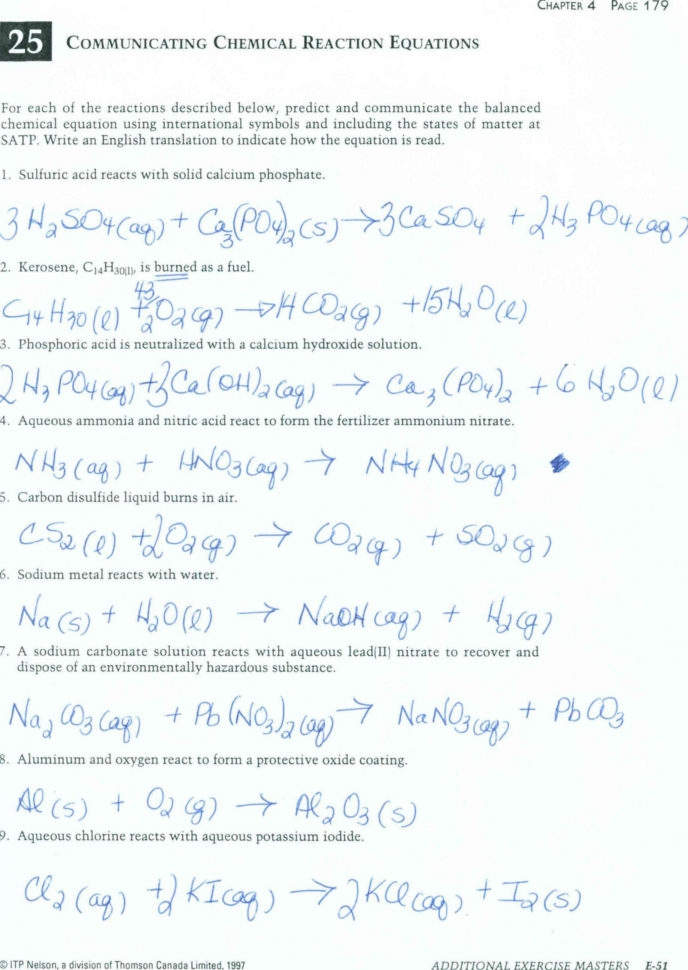 CHAPTER 4 PAGE 179
25 COMMUNICATING CHEMICAL REACTION EQUATIONS
For each of the reactions described below, predict and communicate the balanced
chemical equation using international symbols and including the states of matter at
SATP. Write an English translation to indicate how the equation is read.
1. Sulfuric acid reacts with solid calcium phosphate.
3 H₂SO₄(aq) + Ca₃(PO₄)₂(s) → 3CaSO₄ + 2H₃PO₄(aq)
2. Kerosene, C₁₄H₃₀(l), is burned as a fuel.
C₁₄H₃₀(l) + 43/2 O₂(g) → 14 CO₂(g) + 15H₂O(l)
3. Phosphoric acid is neutralized with a calcium hydroxide solution.
2 H₃PO₄(aq) + 3Ca(OH)₂(aq) → Ca₃(PO₄)₂ + 6 H₂O(l)
4. Aqueous ammonia and nitric acid react to form the fertilizer ammonium nitrate.
NH₃(aq) + HNO₃(aq) → NH₄NO₃(aq)
5. Carbon disulfide liquid burns in air.
CS₂(l) + 2O₂(g) → CO₂(g) + SO₂(g)
6. Sodium metal reacts with water.
Na(s) + H₂O(l) → NaOH(aq) + H₂(g)
7. A sodium carbonate solution reacts with aqueous lead(II) nitrate to recover and
dispose of an environmentally hazardous substance.
Na₂CO₃(aq) + Pb(NO₃)₂(aq) → NaNO₃(aq) + PbCO₃
8. Aluminum and oxygen react to form a protective oxide coating.
Al(s) + O₂(g) → Al₂O₃(s)
9. Aqueous chlorine reacts with aqueous potassium iodide.
Cl₂(aq) + 2KI(aq) → 2KCl(aq) + I₂(s)
© ITP Nelson, a division of Thomson Canada Limited, 1997 ADDITIONAL EXERCISE MASTERS E-51